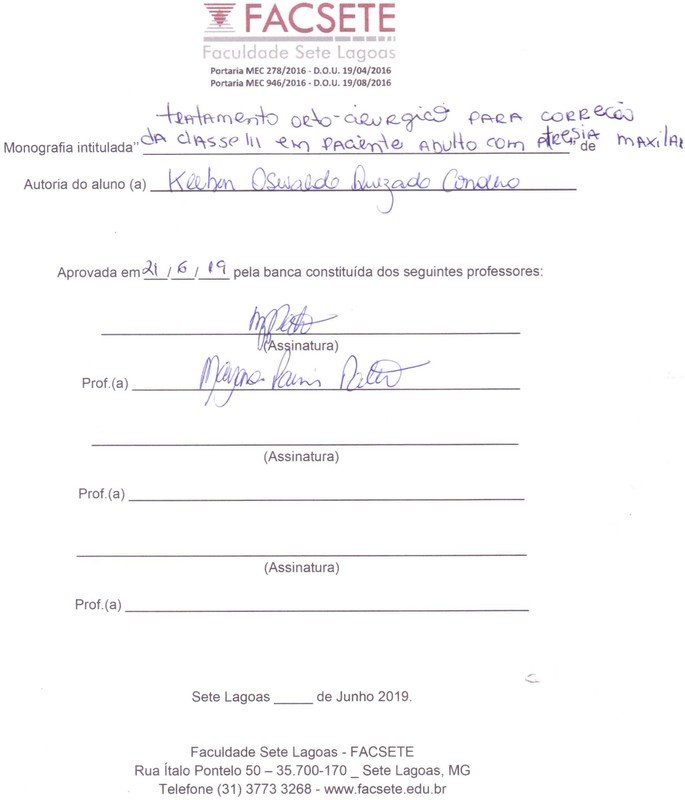 FACSETE
Faculdade Sete Lagoas
Portaria MEC 278/2016 - D.O.U. 19/04/2016
Portaria MEC 946/2016 - D.O.U. 19/08/2016
tratamento orto-cirurgico PARA CORREÇÃO
Monografia intitulada" DA classe III em paciente Adulto com Atresia de maxilar
Autoria do aluno (a) Oswaldo
Aprovada em 21 / 6 / 19 pela banca constituída dos seguintes professores:
(Assinatura)
Prof.(a)
(Assinatura)
Prof.(a)
(Assinatura)
Prof.(a)
Sete Lagoas _____ de Junho 2019.
Faculdade Sete Lagoas - FACSETE
Rua Ítalo Pontelo 50 – 35.700-170 _ Sete Lagoas, MG
Telefone (31) 3773 3268 - www.facsete.edu.br